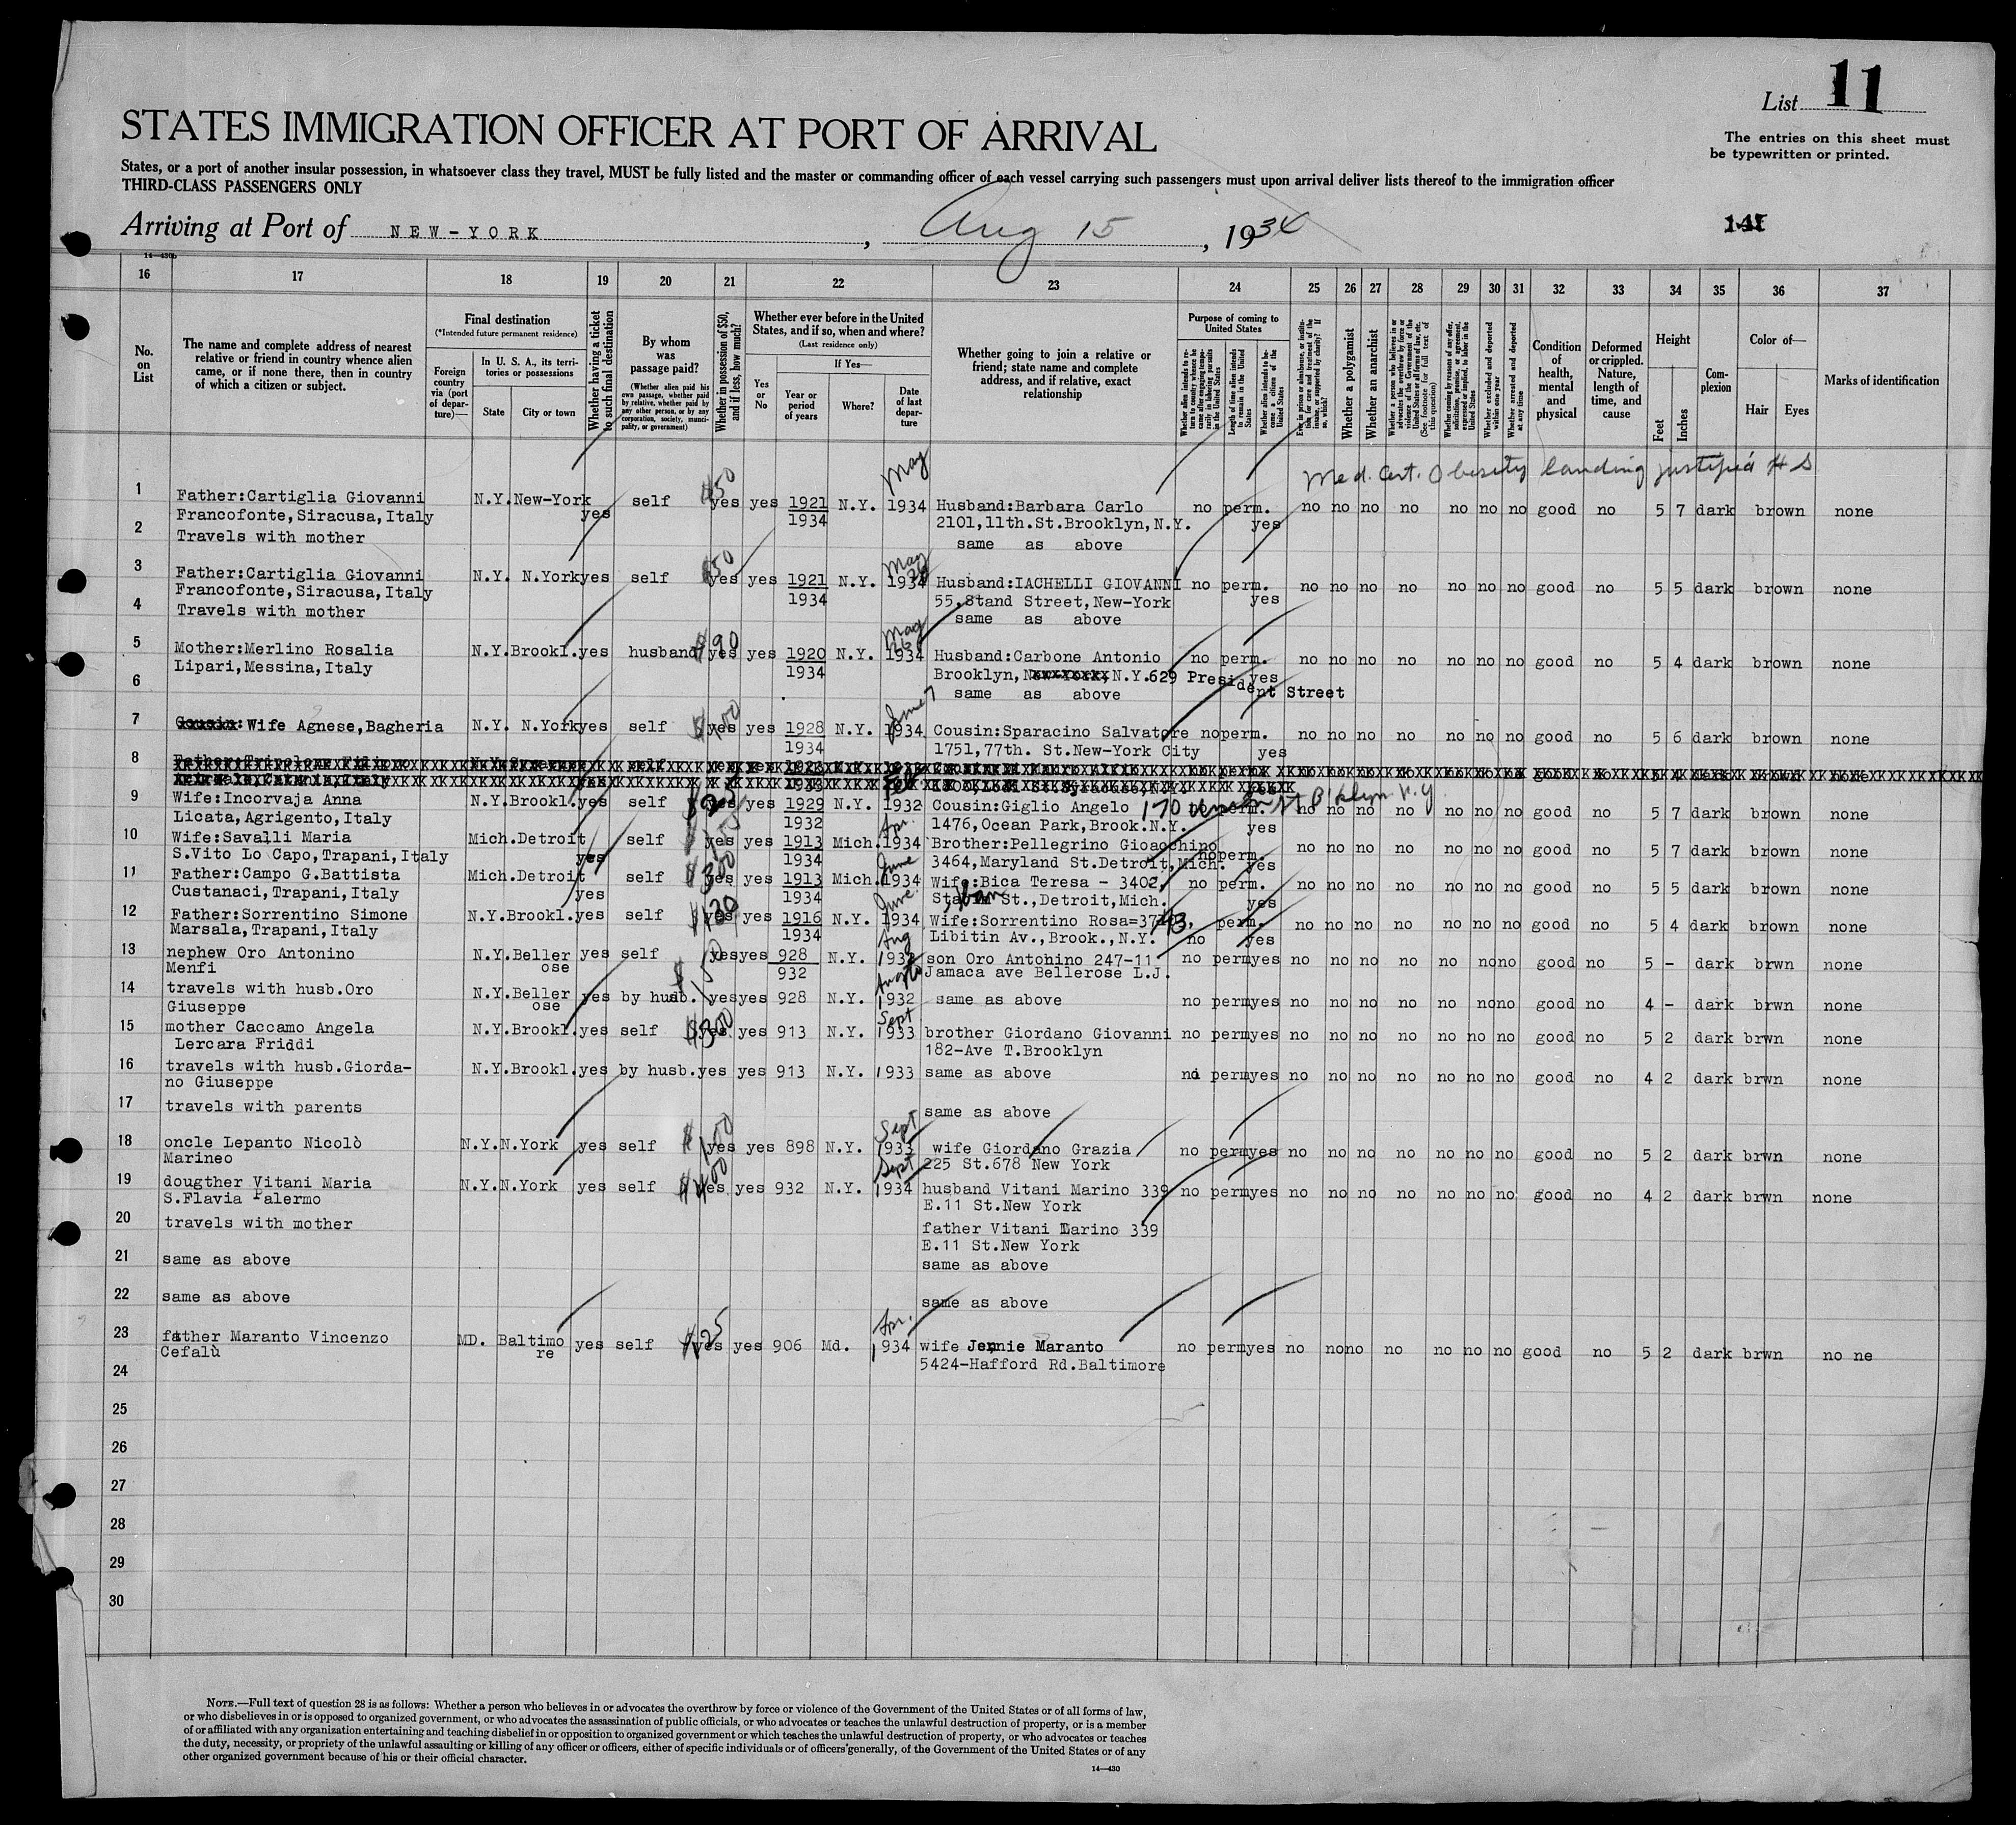 List 11
STATES IMMIGRATION OFFICER AT PORT OF ARRIVAL
The entries on this sheet must
be typewritten or printed.
States, or a port of another insular possession, in whatsoever class they travel, MUST be fully listed and the master or commanding officer of each vessel carrying such passengers must upon arrival deliver lists thereof to the immigration officer
THIRD-CLASS PASSENGERS ONLY
Arriving at Port of NEW-YORK, Aug 15, 1934
14—430b
16 17 18 19 20 21 22 23 24 25 26 27 28 29 30 31 32 33 34 35 36 37
No. on List
The name and complete address of nearest relative or friend in country whence alien came, or if none there, then in country of which a citizen or subject.
Final destination
(*Intended future permanent residence)
Foreign country via (port of departure)—
In U. S. A., its territories or possessions
State
City or town
Whether having a ticket to such final destination
By whom was passage paid?
(Whether alien paid his own passage, whether paid by relative, whether paid by any other person, or by any corporation, society, municipality, or government)
Whether in possession of $50, and if less, how much?
Whether ever before in the United States, and if so, when and where?
(Last residence only)
Yes or No
If Yes—
Year or period of years
Where?
Date of last departure
Whether going to join a relative or friend; state name and complete address, and if relative, exact relationship
Purpose of coming to United States
Whether alien intends to return to country whence he came after engaging temporarily in laboring pursuits in the United States
Length of time alien intends to remain in the United States
Whether alien intends to become a citizen of the United States
Ever in prison or almshouse, or institution for care and treatment of the insane, or supported by charity? If so, which?
Whether a polygamist
Whether an anarchist
Whether a person who believes in or advocates the overthrow by force or violence of the Government of the United States or of all forms of law, etc. (See footnote for full text of this question)
Whether coming by reason of any offer, solicitation, promise, or agreement, expressed or implied, to labor in the United States
Whether excluded and deported within one year
Whether arrested and deported at any time
Condition of health, mental and physical
Deformed or crippled. Nature, length of time, and cause
Height
Feet
Inches
Complexion
Color of—
Hair
Eyes
Marks of identification
Med. Cert. Obesity landing justified H S
May
1 Father:Cartiglia Giovanni N.Y. New-York self $50 yes yes 1921 N.Y. 1934 Husband:Barbara Carlo no perm. no no no no no no no good no 5 7 dark brown none
Francofonte,Siracusa,Italy yes 1934 2101,11th.St.Brooklyn,N.Y. yes
2 Travels with mother same as above
3 Father:Cartiglia Giovanni N.Y. N.York yes self $50 yes yes 1921 N.Y. May 1934 Husband:IACHELLI GIOVANNI no perm. no no no no no no no good no 5 5 dark brown none
Francofonte,Siracusa,Italy 1934 55,Stand Street,New-York yes
4 Travels with mother same as above
5 Mother:Merlino Rosalia N.Y. Brookl. yes husband $90 yes yes 1920 N.Y. May 26 1934 Husband:Carbone Antonio no perm. no no no no no no no good no 5 4 dark brown none
Lipari,Messina,Italy 1934 Brooklyn, N.Y.629 President Street yes
6 same as above
7 Wife Agnese,Bagheria N.Y. N.York yes self $100 yes yes 1928 N.Y. June 7 1934 Cousin:Sparacino Salvatore no perm. no no no no no no no good no 5 6 dark brown none
1934 1751,77th. St.New-York City yes
8
9 Wife:Incorvaja Anna N.Y. Brookl. yes self yes yes 1929 N.Y. Feb 1932 Cousin:Giglio Angelo 170 St B'klyn N.Y. perm. no no no no no no no good no 5 7 dark brown none
Licata,Agrigento,Italy 1932 1476,Ocean Park,Brook.N.Y. yes
10 Wife:Savalli Maria Mich. Detroit self yes yes 1913 Mich. Apr. 1934 Brother:Pellegrino Gioacchino no perm. no no no no no no no good no 5 7 dark brown none
S.Vito Lo Capo,Trapani,Italy yes 1934 3464,Maryland St.Detroit,Mich. yes
11 Father:Campo G.Battista Mich. Detroit self $300 yes yes 1913 Mich. June 1934 Wife:Bica Teresa - 3402, no perm. no no no no no no no good no 5 5 dark brown none
Custanaci,Trapani,Italy yes 1934 St.,Detroit,Mich. yes
12 Father:Sorrentino Simone N.Y. Brookl. yes self $120 yes yes 1916 N.Y. June 1934 Wife:Sorrentino Rosa= perm. no no no no no no no good no 5 4 dark brown none
Marsala,Trapani,Italy 1934 Libitin Av.,Brook.,N.Y. no yes
13 nephew Oro Antonino N.Y. Bellerose yes self yes yes 928 N.Y. Aug 1932 son Oro Antonino 247-11 no perm yes no no no no no no no good no 5 - dark brwn none
Menfi 932 Jamaca ave Bellerose L.J.
14 travels with husb.Oro N.Y. Bellerose yes by husb. yes yes 928 N.Y. 1932 same as above no perm yes no no no no no no no good no 4 - dark brwn none
Giuseppe
15 mother Caccamo Angela N.Y. Brookl. yes self $300 yes yes 913 N.Y. Sept 1933 brother Giordano Giovanni no perm yes no no no no no no no good no 5 2 dark brwn none
Lercara Friddi 182-Ave T.Brooklyn
16 travels with husb.Giorda- N.Y. Brookl. yes by husb. yes yes 913 N.Y. 1933 same as above no perm yes no no no no no no no good no 4 2 dark brwn none
no Giuseppe
17 travels with parents same as above
18 oncle Lepanto Nicolò N.Y. N.York yes self $100 yes yes 898 N.Y. Sept 1933 wife Giordano Grazia no perm yes no no no no no no no good no 5 2 dark brwn none
Marineo 225 St.678 New York
19 dougther Vitani Maria N.Y. N.York yes self $400 yes yes 932 N.Y. Sept 1934 husband Vitani Marino 339 no perm yes no no no no no no no good no 4 2 dark brwn none
S.Flavia Palermo E.11 St.New York
20 travels with mother father Vitani Marino 339
E.11 St.New York
21 same as above same as above
22 same as above same as above
23 father Maranto Vincenzo MD. Baltimore yes self $25 yes yes 906 Md. Apr. 1934 wife Jennie Maranto no perm yes no no no no no no no good no 5 2 dark brwn no ne
Cefalù 5424-Hafford Rd.Baltimore
24
25
26
27
28
29
30
NOTE.—Full text of question 28 is as follows: Whether a person who believes in or advocates the overthrow by force or violence of the Government of the United States or of all forms of law,
or who disbelieves in or is opposed to organized government, or who advocates the assassination of public officials, or who advocates or teaches the unlawful destruction of property, or is a member
of or affiliated with any organization entertaining and teaching disbelief in or opposition to organized government or which teaches the unlawful destruction of property, or who advocates or teaches
the duty, necessity, or propriety of the unlawful assaulting or killing of any officer or officers, either of specific individuals or of officers generally, of the Government of the United States or of any
other organized government because of his or their official character.
14—430